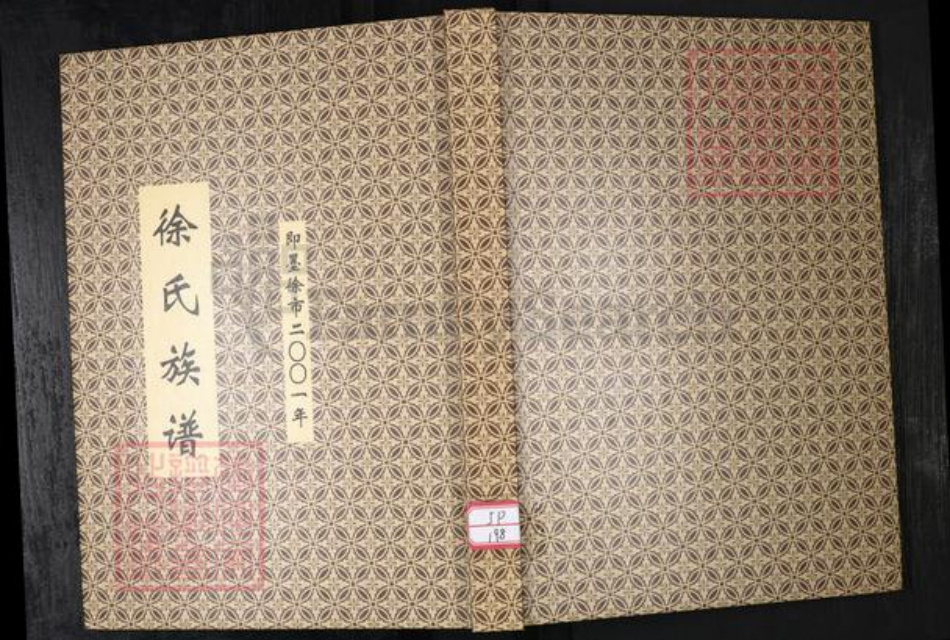 徐氏族谱
即墨徐市二〇〇一年
JP
198